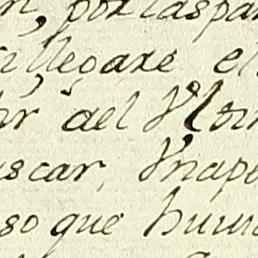 n, por las par
llegare el
or del Mon
uscar, Vnape
so que huui